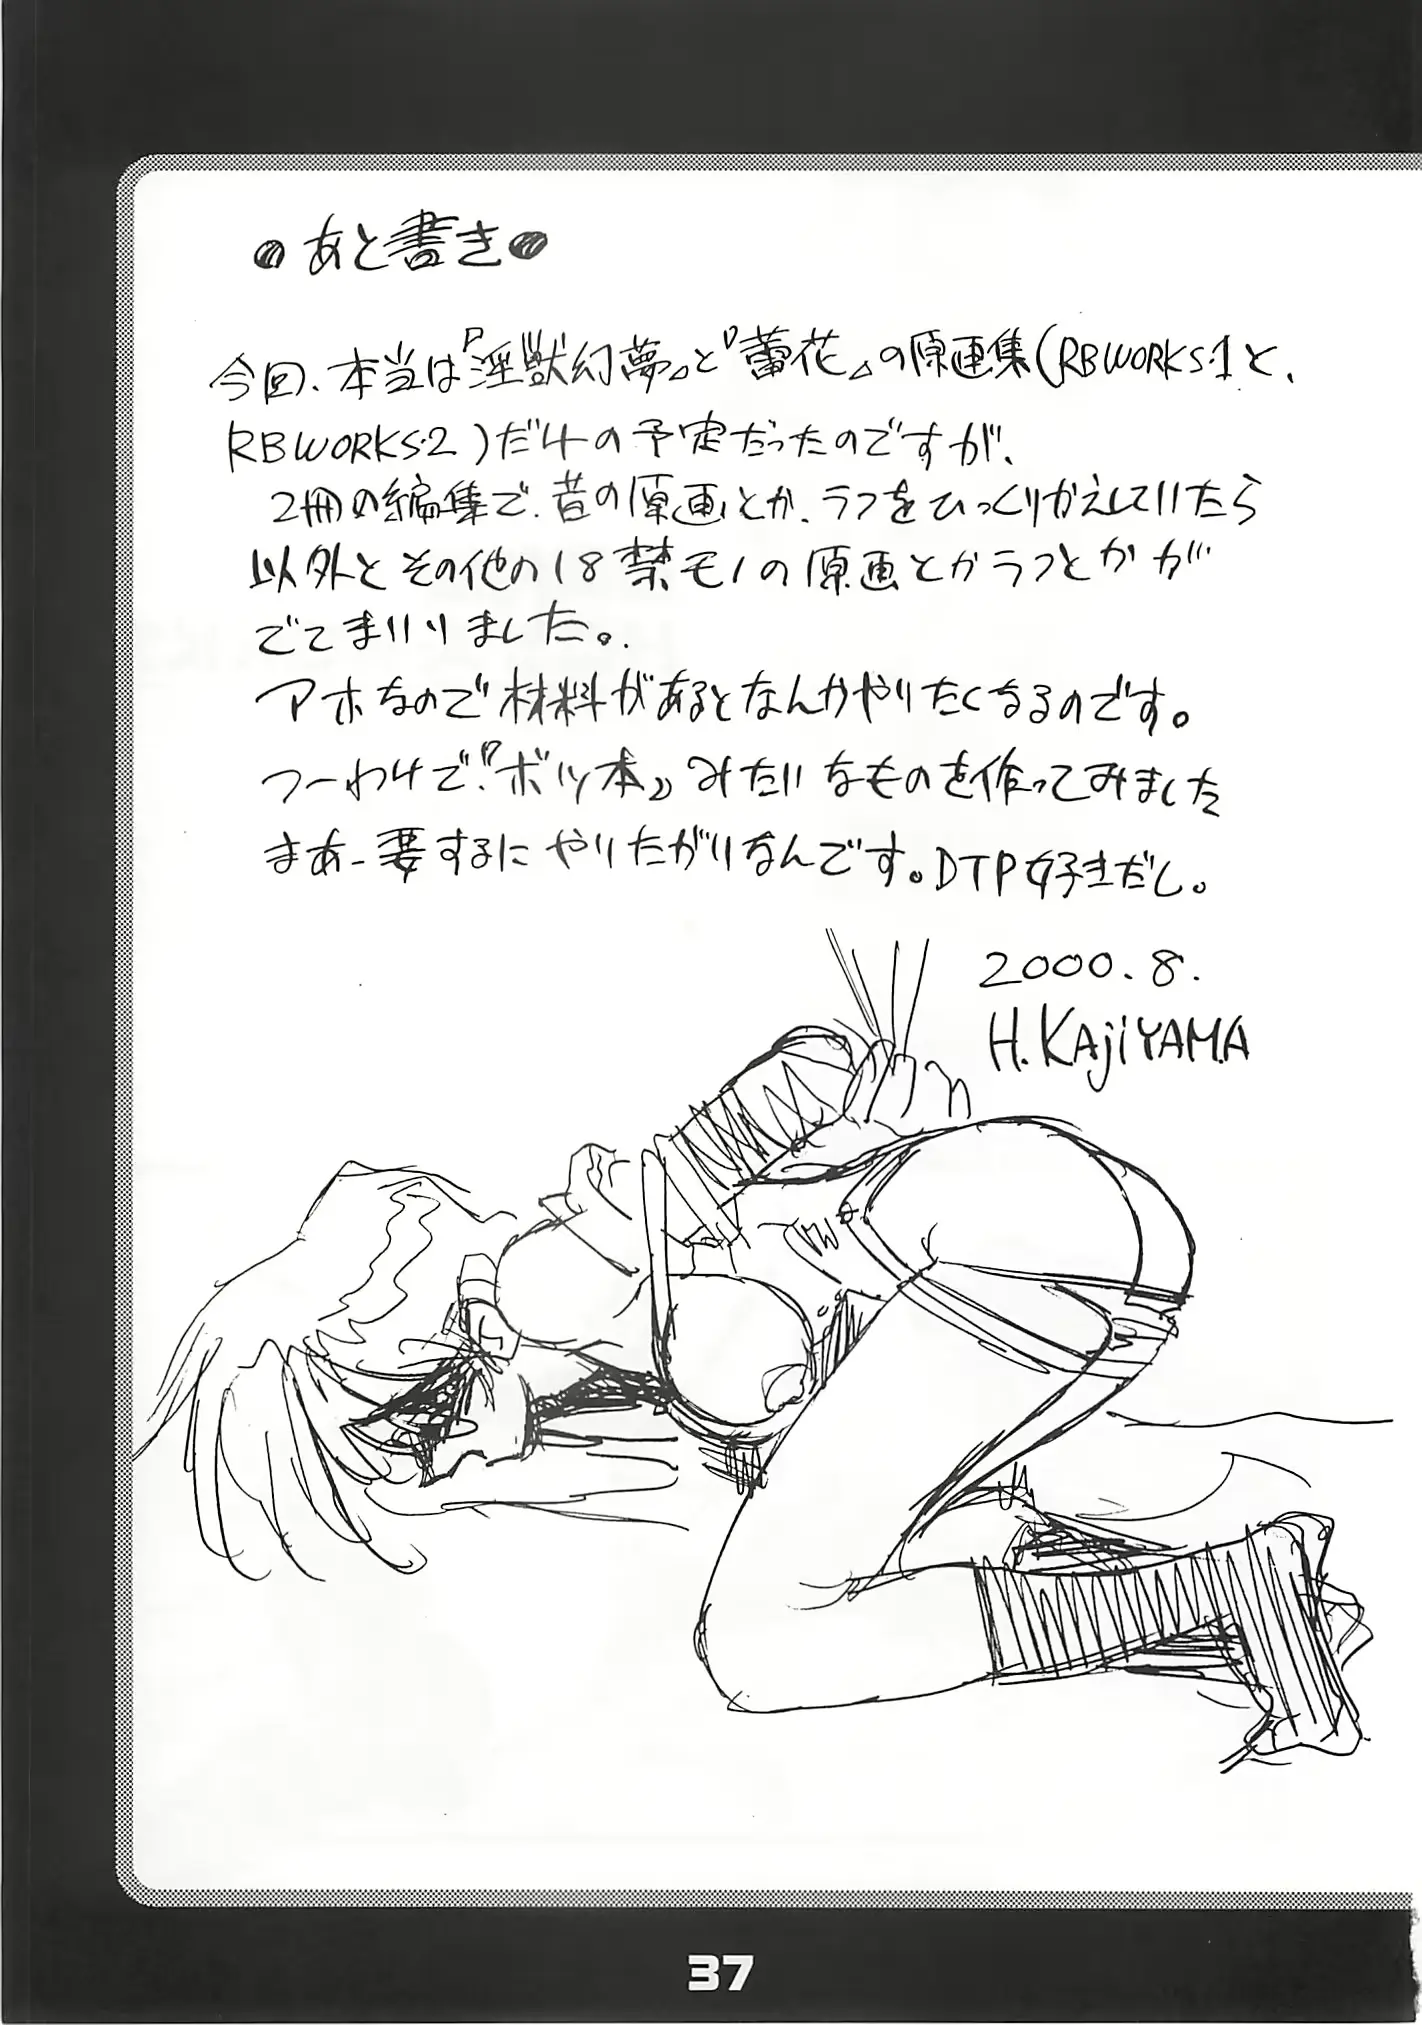 あと書き
今回、本当は『淫獣幻夢』と『蕾花』の原画集(RBWORKS・1と、
RBWORKS・2)だけの予定だったのですが、
2冊の編集で、昔の原画とか、ラフをひっくりかえしていたら
以外とその他の18禁モノの原画とかラフとかが
でてまいりました。
アホなので材料があるとなんかやりたくなるのです。
つーわけで、『ボツ本』みたいなものを作ってみました
まあー要するにやりたがりなんです。DTP好きだし。
2000.8.
H.KAjiYAMA
37